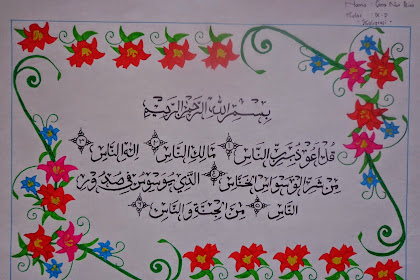 Nama :
Kelas :
"Kaligrafi"
بسم الله الرحمن الرحيم
قل أعوذ برب الناس ملك الناس إله الناس
من شر الوسواس الخناس الذي يوسوس في صدور
الناس من الجنة والناس